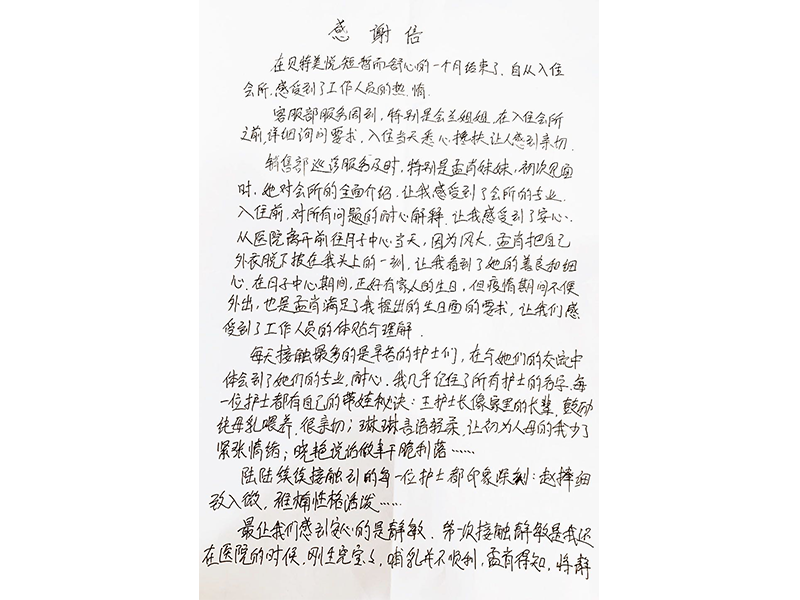 感谢信
在贝特美悦短暂而舒心的一个月结束了，自从入住
会所，感受到了工作人员的热情。
客服部服务周到，特别是会兰姐姐，在入住会所
之前，详细询问要求，入住当天悉心搀扶，让人感到亲切。
销售部巡诊服务及时，特别是孟肖妹妹，初次见面
时，她对会所的全面介绍，让我感受到了会所的专业，
入住前，对所有问题的耐心解释，让我感受到了安心，
从医院离开前往月子中心当天，因为风大，孟肖把自己
外衣脱下披在我头上的一刻，让我看到了她的善良和细
心。在月子中心期间，正好有家人的生日，但疫情期间不便
外出，也是孟肖满足了我提出的生日面的要求，让我们感
受到了工作人员的体贴与理解。
每天接触最多的是早吉的护士们，在与她们的交流中
体会到了她们的专业，耐心。我几乎记住了所有护士的名字，每
一位护士都有自己的带娃秘诀：王护士长像家里的长辈，鼓励
纯母乳喂养，很亲切；琳琳言语轻柔，让初为人母的我少了
紧张情绪；晓艳说话做事干脆利落……
陆陆续续接触到的每一位护士都印象深刻：赵择细
致入微，雅楠性格活泼……
最让我们感到安心的是静敏。第一次接触静敏是我还
在医院的时候，刚生完宝宝，哺乳并不顺利，孟肖得知，将静